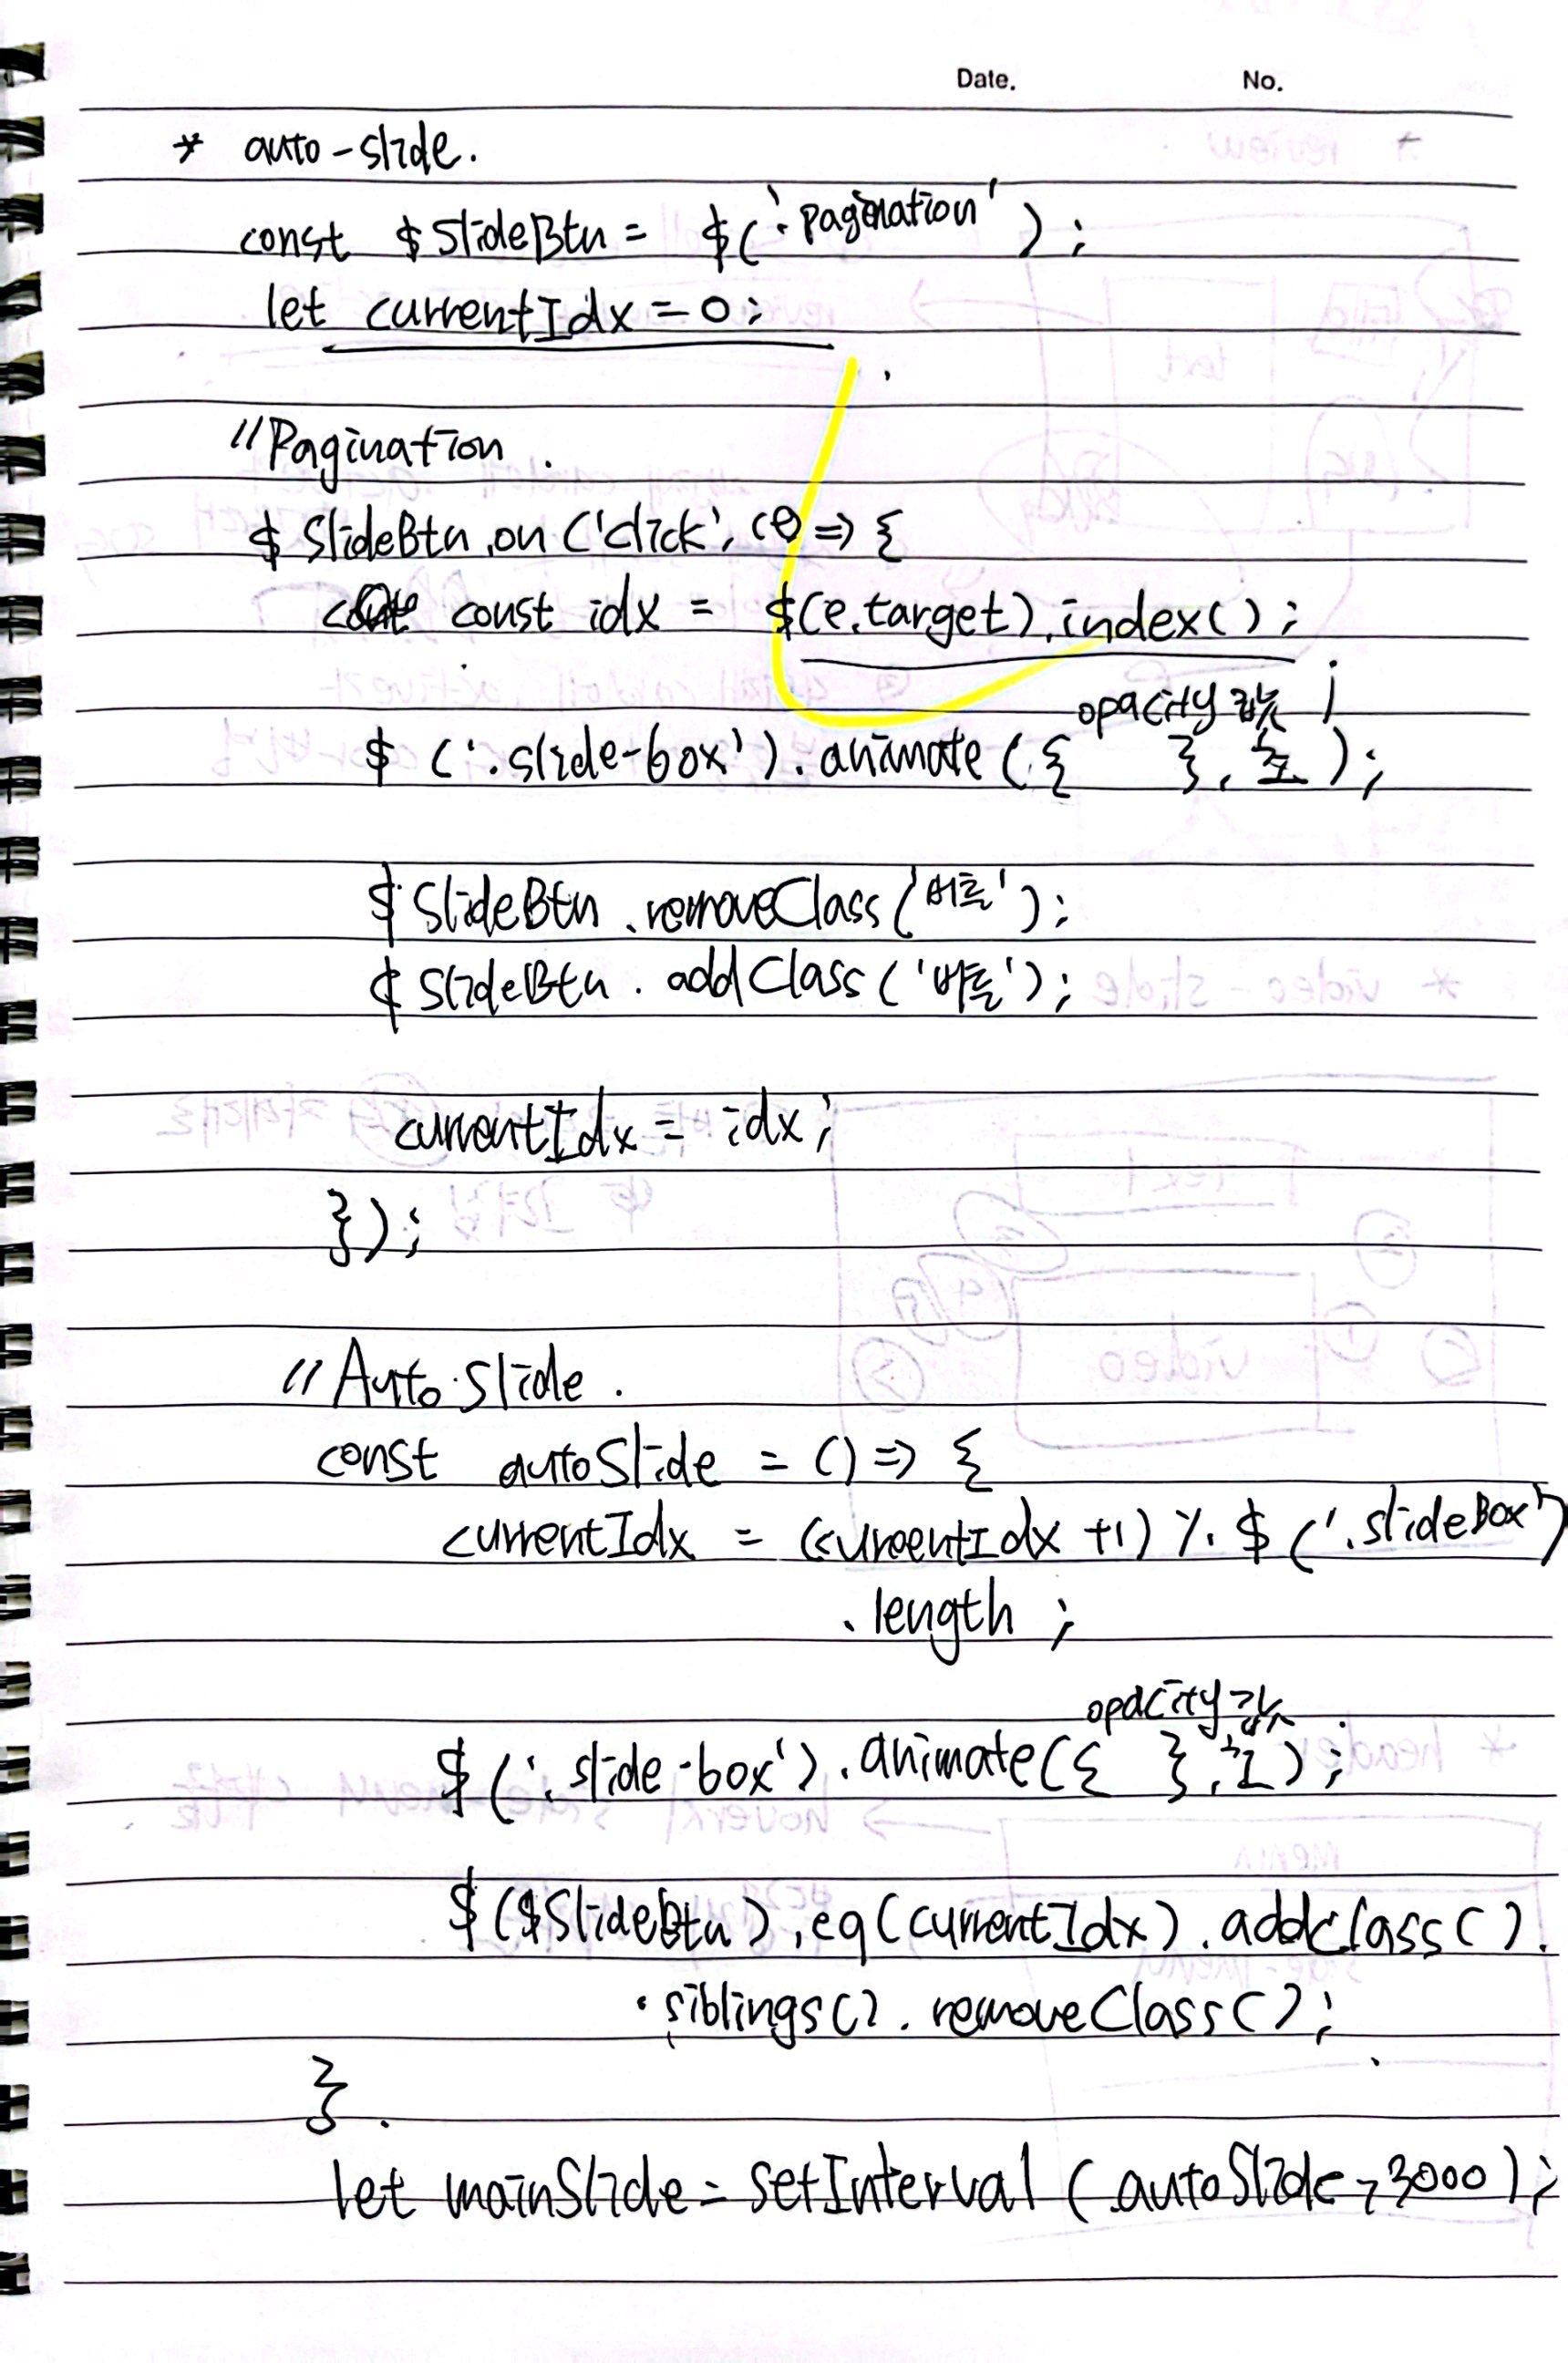 Date.	No.
* auto-slide.
const $slideBtn = $('.pagination');
let currentIdx = 0;
//Pagination.
$slideBtn.on('click', (e) => {
const idx = $(e.target).index();
opacity 값
$('.slide-box').animate({ }, 초);
$slideBtn.removeClass('버튼');
$slideBtn.addClass('버튼');
currentIdx = idx;
});
//Auto slide.
const autoSlide = () => {
currentIdx = (cureentIdx +1) % $('.slideBox')
.length;
opacity 값
$('.slide-box').animate({ }, 초);
$($slideBtn).eq(currentIdx).addclass().
.siblings().removeClass();
}.
let mainSlide = setInterval(autoSlide, 3000);